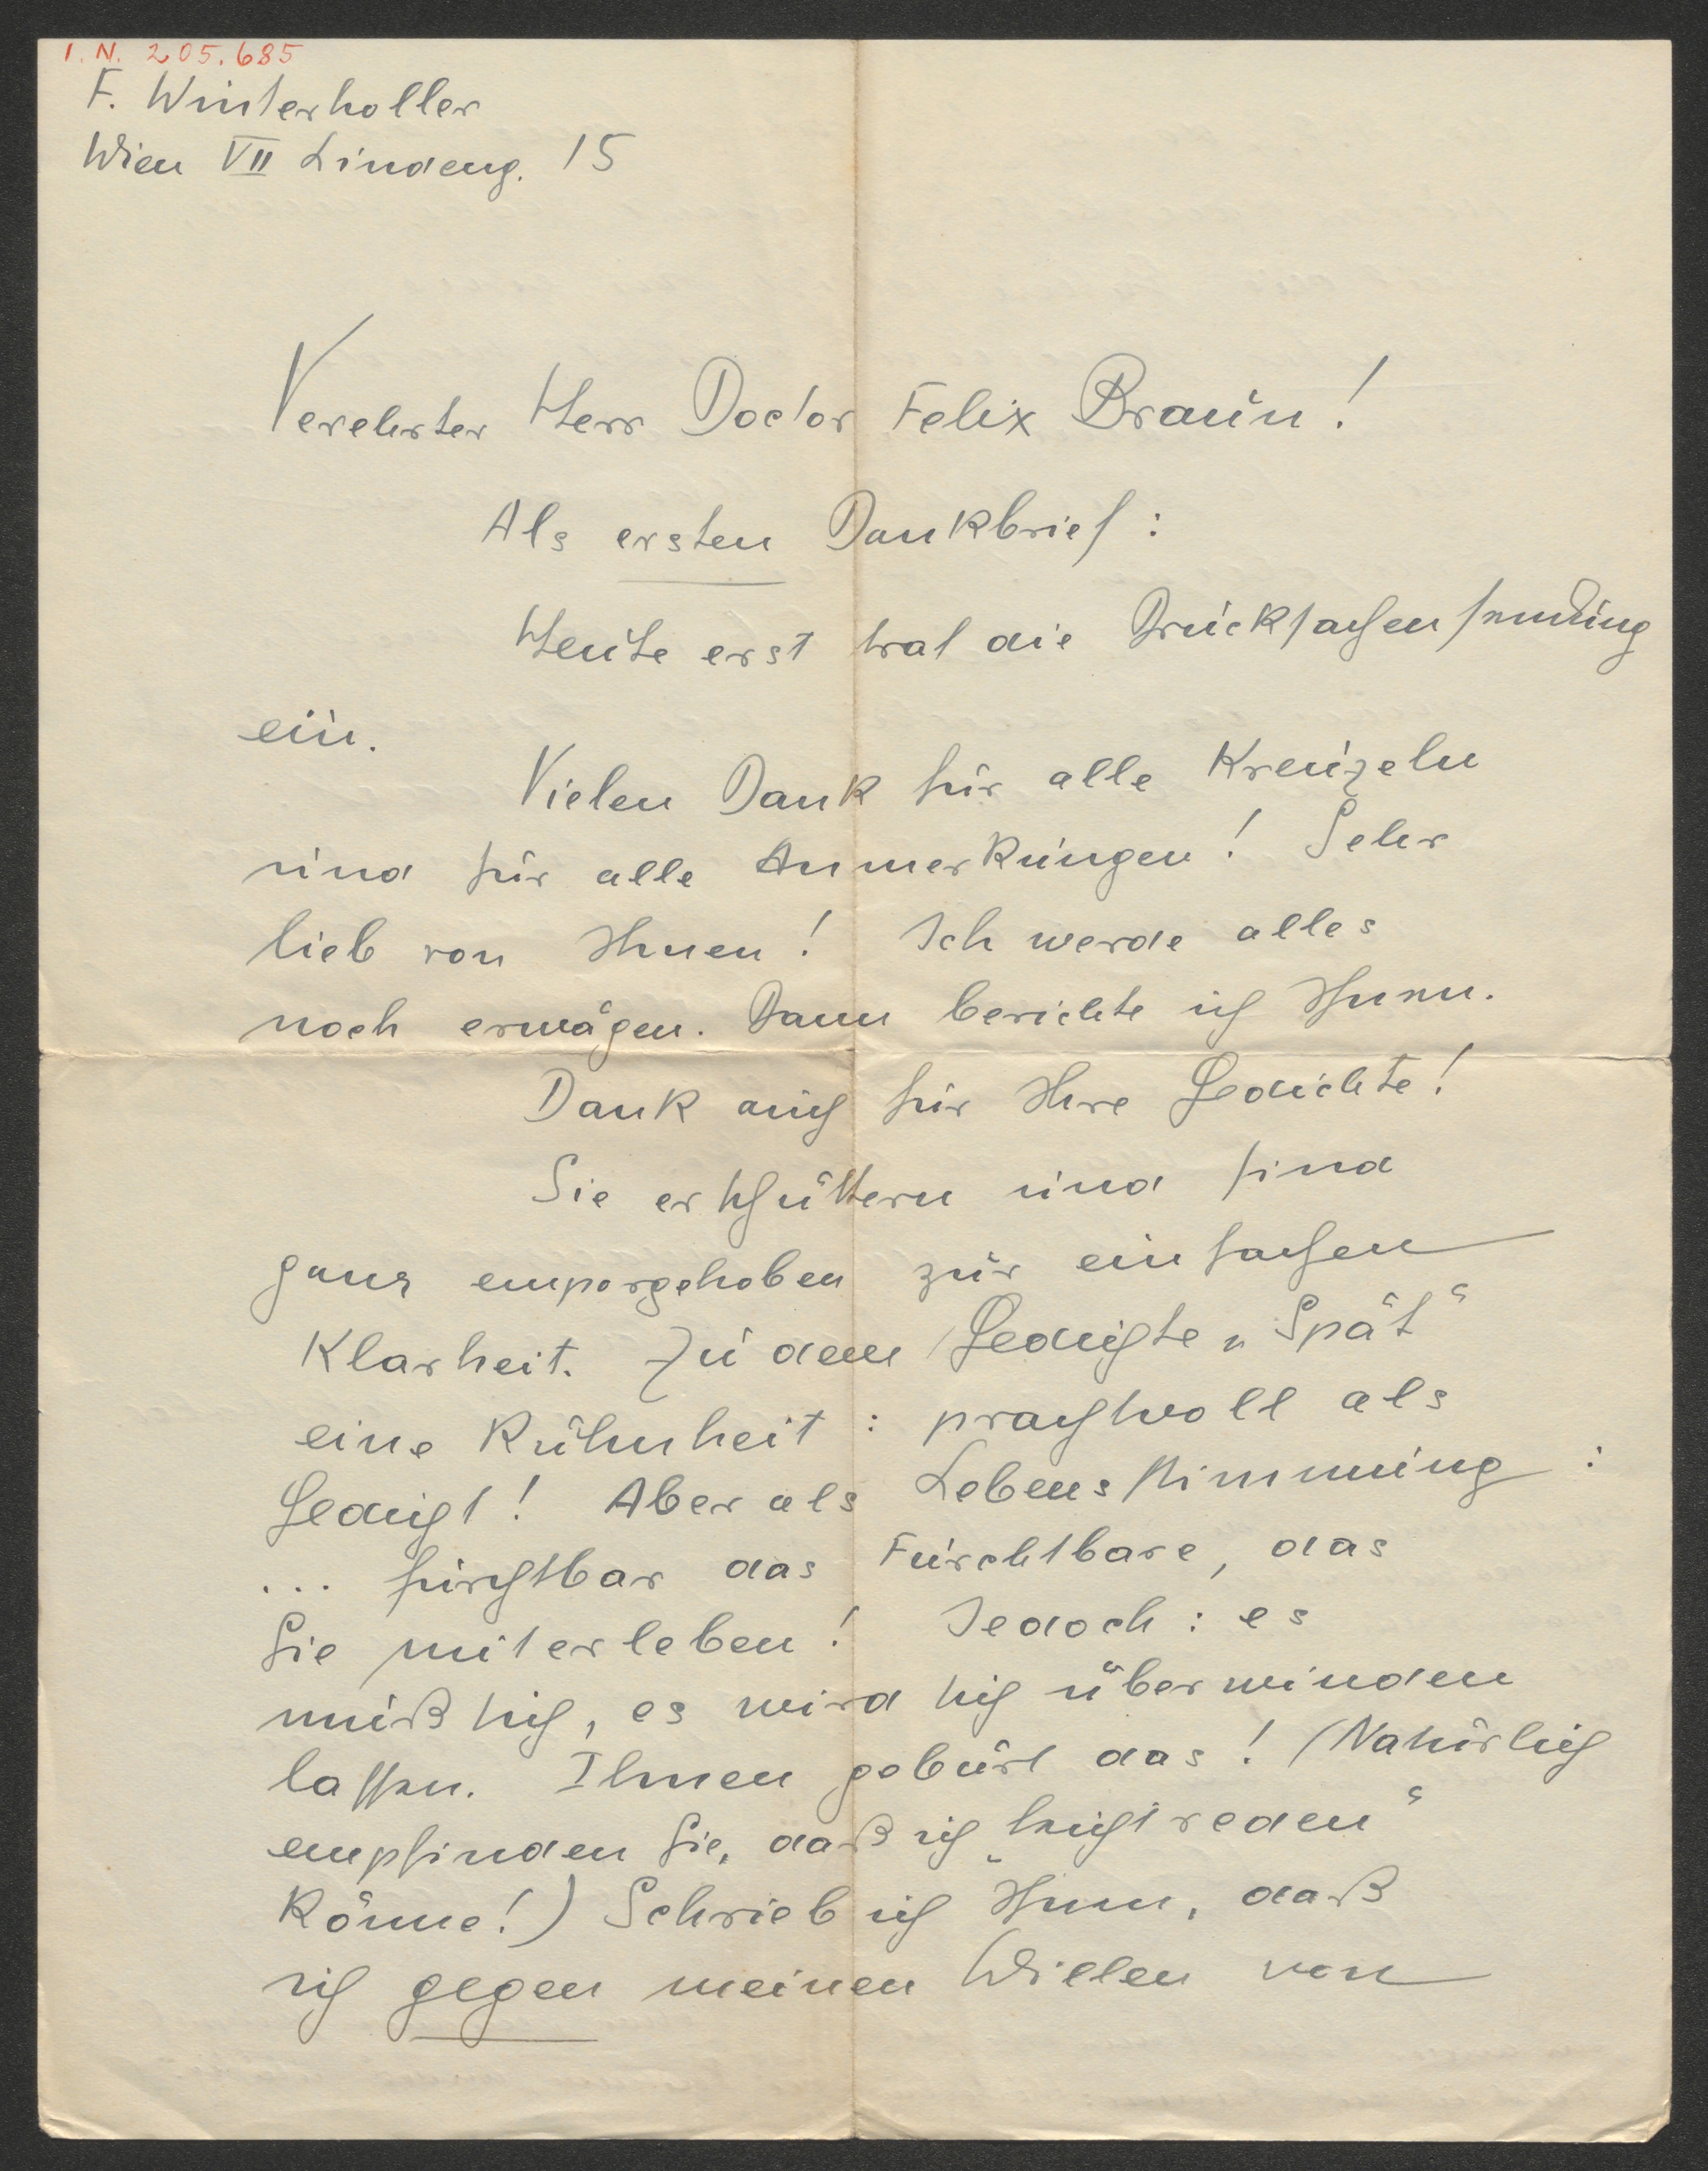 I. N. 205.685
F. Winterholler
Wien VII Lindeng. 15
Verehrter Herr Doctor Felix Braun!
Als ersten Dankbrief:
Heute erst traf die Drucksachensendung
ein.
Vielen Dank für alle Kreuzeln
und für alle Anmerkungen! Sehr
lieb von Ihnen! Ich werde alles
noch erwägen. Dann berichte ich Ihnen.
Dank auch für Ihre Gedichte!
Sie erschüttern und sind
ganz emporgehoben zur einfachen
Klarheit. Zu dem Gedichte „Spät“
eine Kühnheit: prachtvoll als
Gedicht! Aber als Lebensstimmung:
... furchtbar das Furchtbare, das
Sie miterleben! Jedoch: es
muß sich, es wird sich überwinden
lassen. Ihnen gebürt das! (Natürlich
empfinden Sie, daß ich „leicht reden“
könne!) Schrieb ich Ihnen, daß
ich gegen meinen Willen von